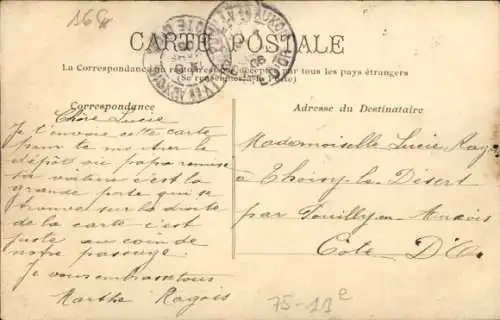 16e
CARTE POSTALE
La Correspondance au recto n'est pas acceptée par tous les pays étrangers
(Se renseigner à la Poste)
Correspondance
Adresse du Destinataire
Chère Lucie
Je t'envoie cette carte
pour te montrer le
dépôt où papa remise
sa voiture c'est la
grande porte qui se
trouve sur la droite
de la carte c'est
juste au coin de
notre passage.
Je vous embrasse tous
Marthe Ragois
Mademoiselle Lucie
à Thoisy-le-Désert
par Pouilly-en-Auxois
Côte D'Or
75-11e